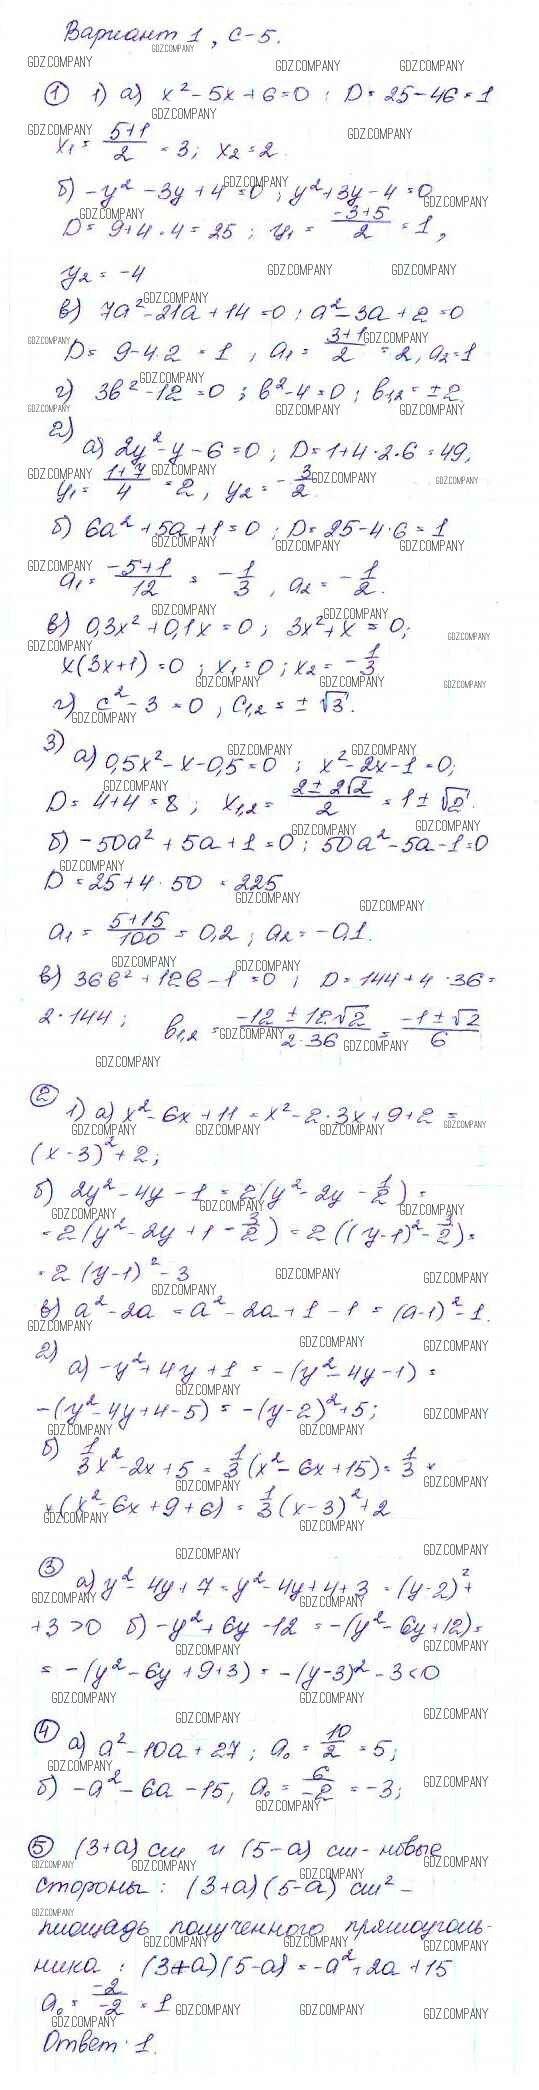 Вариант 1, С-5.
① 1) а) x² - 5x + 6 = 0 ; D = 25 - 46 = 1
x₁ = (5+1)/2 = 3; x₂ = 2.
б) -y² - 3y + 4 = 0 ; y² + 3y - 4 = 0
D = 9 + 4 · 4 = 25 ; y₁ = (-3+5)/2 = 1,
y₂ = -4
в) 7a² - 21a + 14 = 0 ; a² - 3a + 2 = 0
D = 9 - 4·2 = 1 , a₁ = (3+1)/2 = 2, a₂ = 1
г) 3b² - 12 = 0 ; b² - 4 = 0 ; b₁,₂ = ±2
2)
а) 2y² - y - 6 = 0 ; D = 1 + 4 · 2 · 6 = 49,
y₁ = (1+7)/4 = 2 , y₂ = -3/2.
б) 6a² + 5a + 1 = 0 ; D = 25 - 4·6 = 1
a₁ = (-5+1)/12 = -1/3 , a₂ = -1/2.
в) 0,3x² + 0,1x = 0 ; 3x² + x = 0;
x(3x+1) = 0 ; x₁ = 0 ; x₂ = -1/3
г) c² - 3 = 0 , c₁,₂ = ± √3.
3) а) 0,5x² - x - 0,5 = 0 ; x² - 2x - 1 = 0;
D = 4 + 4 = 8 ; x₁,₂ = (2 ± 2√2)/2 = 1 ± √2.
б) -50a² + 5a + 1 = 0 ; 50a² - 5a - 1 = 0
D = 25 + 4 · 50 = 225
a₁ = (5+15)/100 = 0,2 ; a₂ = -0,1.
в) 36b² + 12b - 1 = 0 ; D = 144 + 4 · 36 =
2 · 144 ; b₁,₂ = (-12 ± 12√2)/(2·36) = (-1 ± √2)/6
② 1) а) x² - 6x + 11 = x² - 2·3x + 9 + 2 =
(x - 3)² + 2;
б) 2y² - 4y - 1 = 2(y² - 2y - 1/2) =
= 2(y² - 2y + 1 - 3/2) = 2((y-1)² - 3/2) =
= 2(y-1)² - 3
в) a² - 2a = a² - 2a + 1 - 1 = (a-1)² - 1.
2) а) -y² + 4y + 1 = -(y² - 4y - 1) =
-(y² - 4y + 4 - 5) = -(y-2)² + 5;
б) 1/3x² - 2x + 5 = 1/3(x² - 6x + 15) = 1/3 ×
×(x² - 6x + 9 + 6) = 1/3(x-3)² + 2
③ а) y² - 4y + 7 = y² - 4y + 4 + 3 = (y-2)² +
+3 > 0 б) -y² + 6y - 12 = -(y² - 6y + 12) =
= -(y² - 6y + 9 + 3) = -(y-3)² - 3 < 0
④ а) a² - 10a + 27 ; a₀ = 10/2 = 5;
б) -a² - 6a - 15, a₀ = 6/-2 = -3;
⑤ (3+a) см и (5-a) см - новые
стороны : (3+a)(5-a) см² -
площадь полученного прямоуголь-
ника : (3+a)(5-a) = -a² + 2a + 15
a₀ = -2/-2 = 1
Ответ · 1.